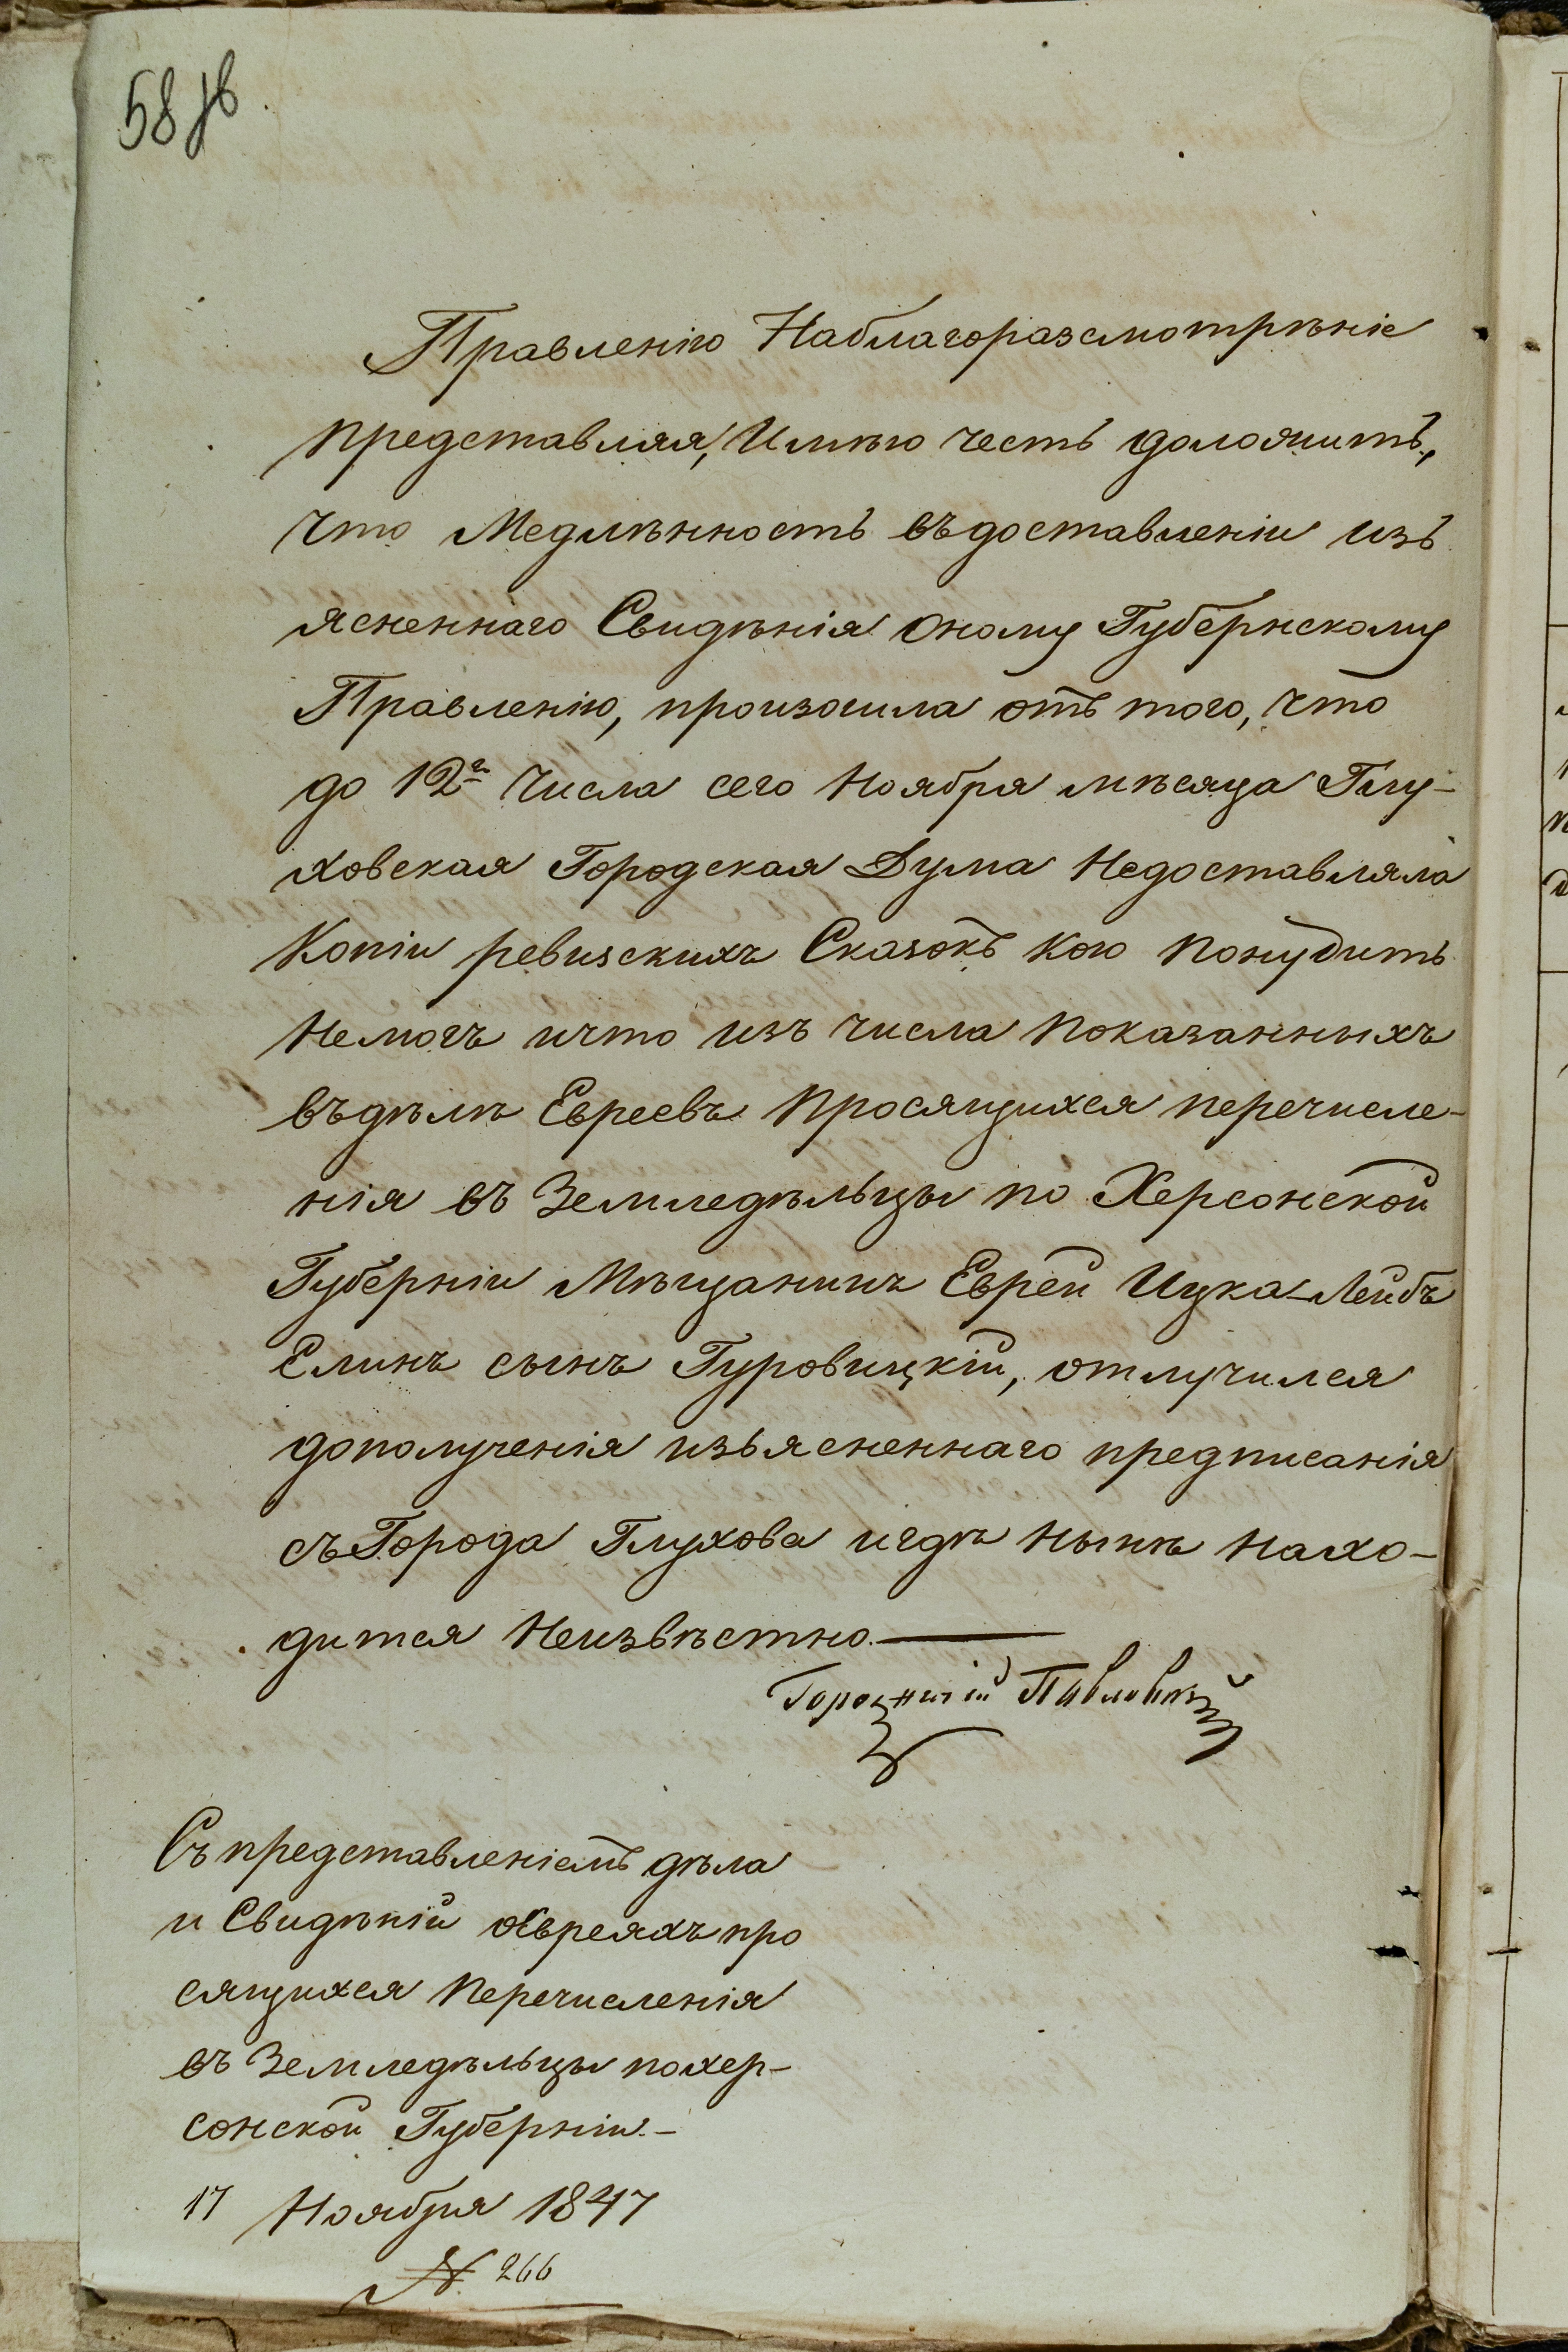 58 зв.
Правленію Наблагоразсмотрѣніе
представляя, Имѣю честь доложить,
что Медлѣнность въдоставленіи изъ
ясненнаго Свидѣнія оному Губернскому
Правленію, произошла отъ того, что
до 12го числа сего Ноября мѣсяца Глу-
ховская Городская Дума Недоставляла
Копіи ревизскихъ Сказокъ кою понудить
Немогъ ичто изъ числа показанныхъ
въдѣлѣ Евреевъ просящихся перечисле-
нія въ Земледѣльцы по Херсонской
Губерніи Мѣщанинъ Еврей Ицка-Лейбъ
Елинъ сынъ Гуровицкій, отлучился
дополученія изъясненнаго предписанія
съ Города Глухова игдѣ нынѣ нахо-
дится Неизвѣстно.
Городничій Павловскій
Съ представленіемъ дѣла
и Свидѣній оЕвреяхъ про
сящихся перечисленія
въ Земледѣльцы похер-
сонской Губерніи.-
17 Ноября 1847
№ 266